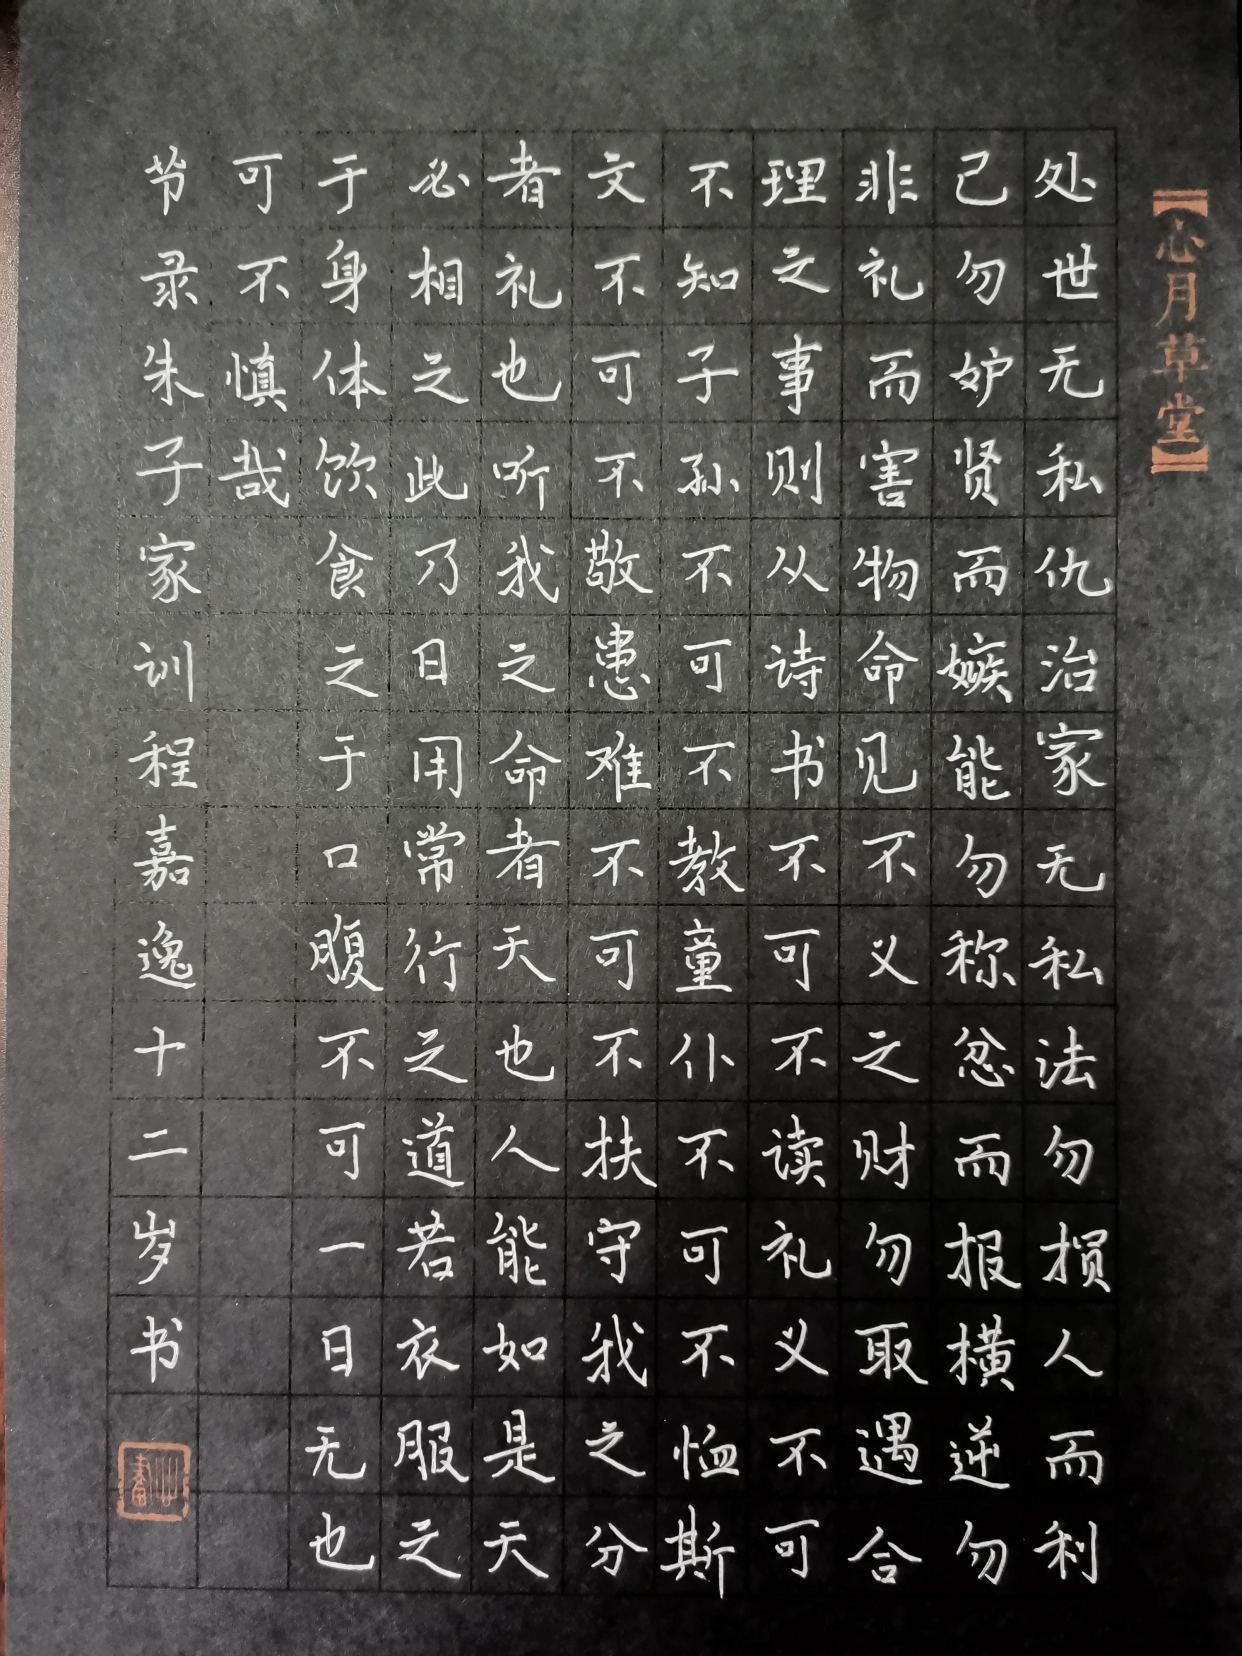 【心月草堂】
处世无私仇治家无私法勿损人而利
己勿妒贤而嫉能勿称忿而报横逆勿
非礼而害物命见不义之财勿取遇合
理之事则从诗书不可不读礼义不可
不知子孙不可不教童仆不可不恤斯
文不可不敬患难不可不扶守我之分
者礼也听我之命者天也人能如是天
必相之此乃日用常行之道若衣服之
于身体饮食之于口腹不可一日无也
可不慎哉
节录朱子家训程嘉逸十二岁书